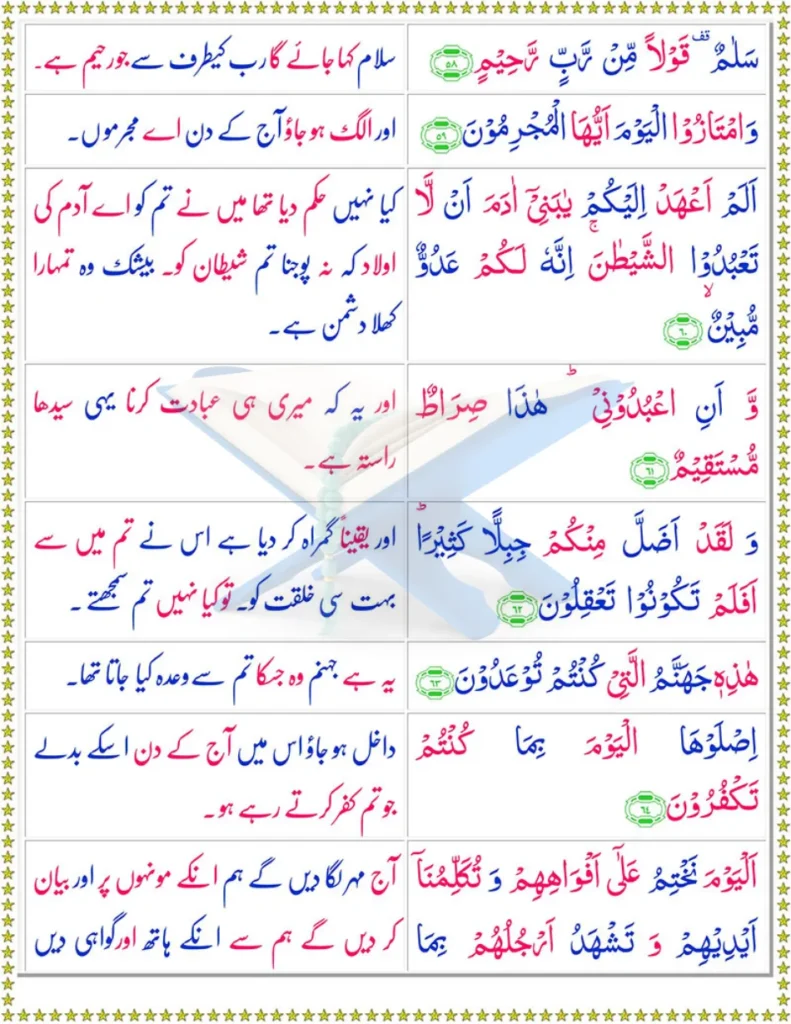 سَلٰمٌ ۟ قَوْلًا مِّنْ رَّبٍّ رَّحِيْمٍ ﴿٥٨﴾
سلام کہا جائے گا رب کیطرف سے جو رحیم ہے۔
وَامْتَازُوا الْيَوْمَ اَيُّهَا الْمُجْرِمُوْنَ ﴿٥٩﴾
اور الگ ہو جاؤ آج کے دن اے مجرموں۔
اَلَمْ اَعْهَدْ اِلَيْكُمْ يٰبَنِيْۤ اٰدَمَ اَنْ لَّا
تَعْبُدُوْا الشَّيْطٰنَ ۚ اِنَّهٗ لَكُمْ عَدُوٌّ
مُّبِيْنٌ ۙ ﴿٦٠﴾
کیا نہیں حکم دیا تھا میں نے تم کو اے آدم کی
اولاد کہ نہ پوجنا تم شیطان کو۔ بیشک وہ تمہارا
کھلا دشمن ہے۔
وَّ اَنِ اعْبُدُوْنِيْ ؕ هٰذَا صِرَاطٌ
مُّسْتَقِيْمٌ ﴿٦١﴾
اور یہ کہ میری ہی عبادت کرنا یہی سیدھا
راستہ ہے۔
وَ لَقَدْ اَضَلَّ مِنْكُمْ جِبِلًّا كَثِيْرًا ؕ
اَفَلَمْ تَكُوْنُوْا تَعْقِلُوْنَ ﴿٦٢﴾
اور یقیناً گمراہ کر دیا ہے اس نے تم میں سے
بہت سی خلقت کو۔ تو کیا نہیں تم سمجھتے۔
هٰذِهٖ جَهَنَّمُ الَّتِيْ كُنْتُمْ تُوْعَدُوْنَ ﴿٦٣﴾
یہ ہے جہنم وہ جسکا تم سے وعدہ کیا جاتا تھا۔
اِصْلَوْهَا الْيَوْمَ بِمَا كُنْتُمْ
تَكْفُرُوْنَ ﴿٦٤﴾
داخل ہو جاؤ اس میں آج کے دن اسکے بدلے
جو تم کفر کرتے رہے ہو۔
اَلْيَوْمَ نَخْتِمُ عَلٰۤى اَفْوَاهِهِمْ وَ تُكَلِّمُنَاۤ
اَيْدِيْهِمْ وَ تَشْهَدُ اَرْجُلُهُمْ بِمَا
آج مہر لگا دیں گے ہم انکے مونہوں پر اور بیان
کر دیں گے ہم سے انکے ہاتھ اور گواہی دیں